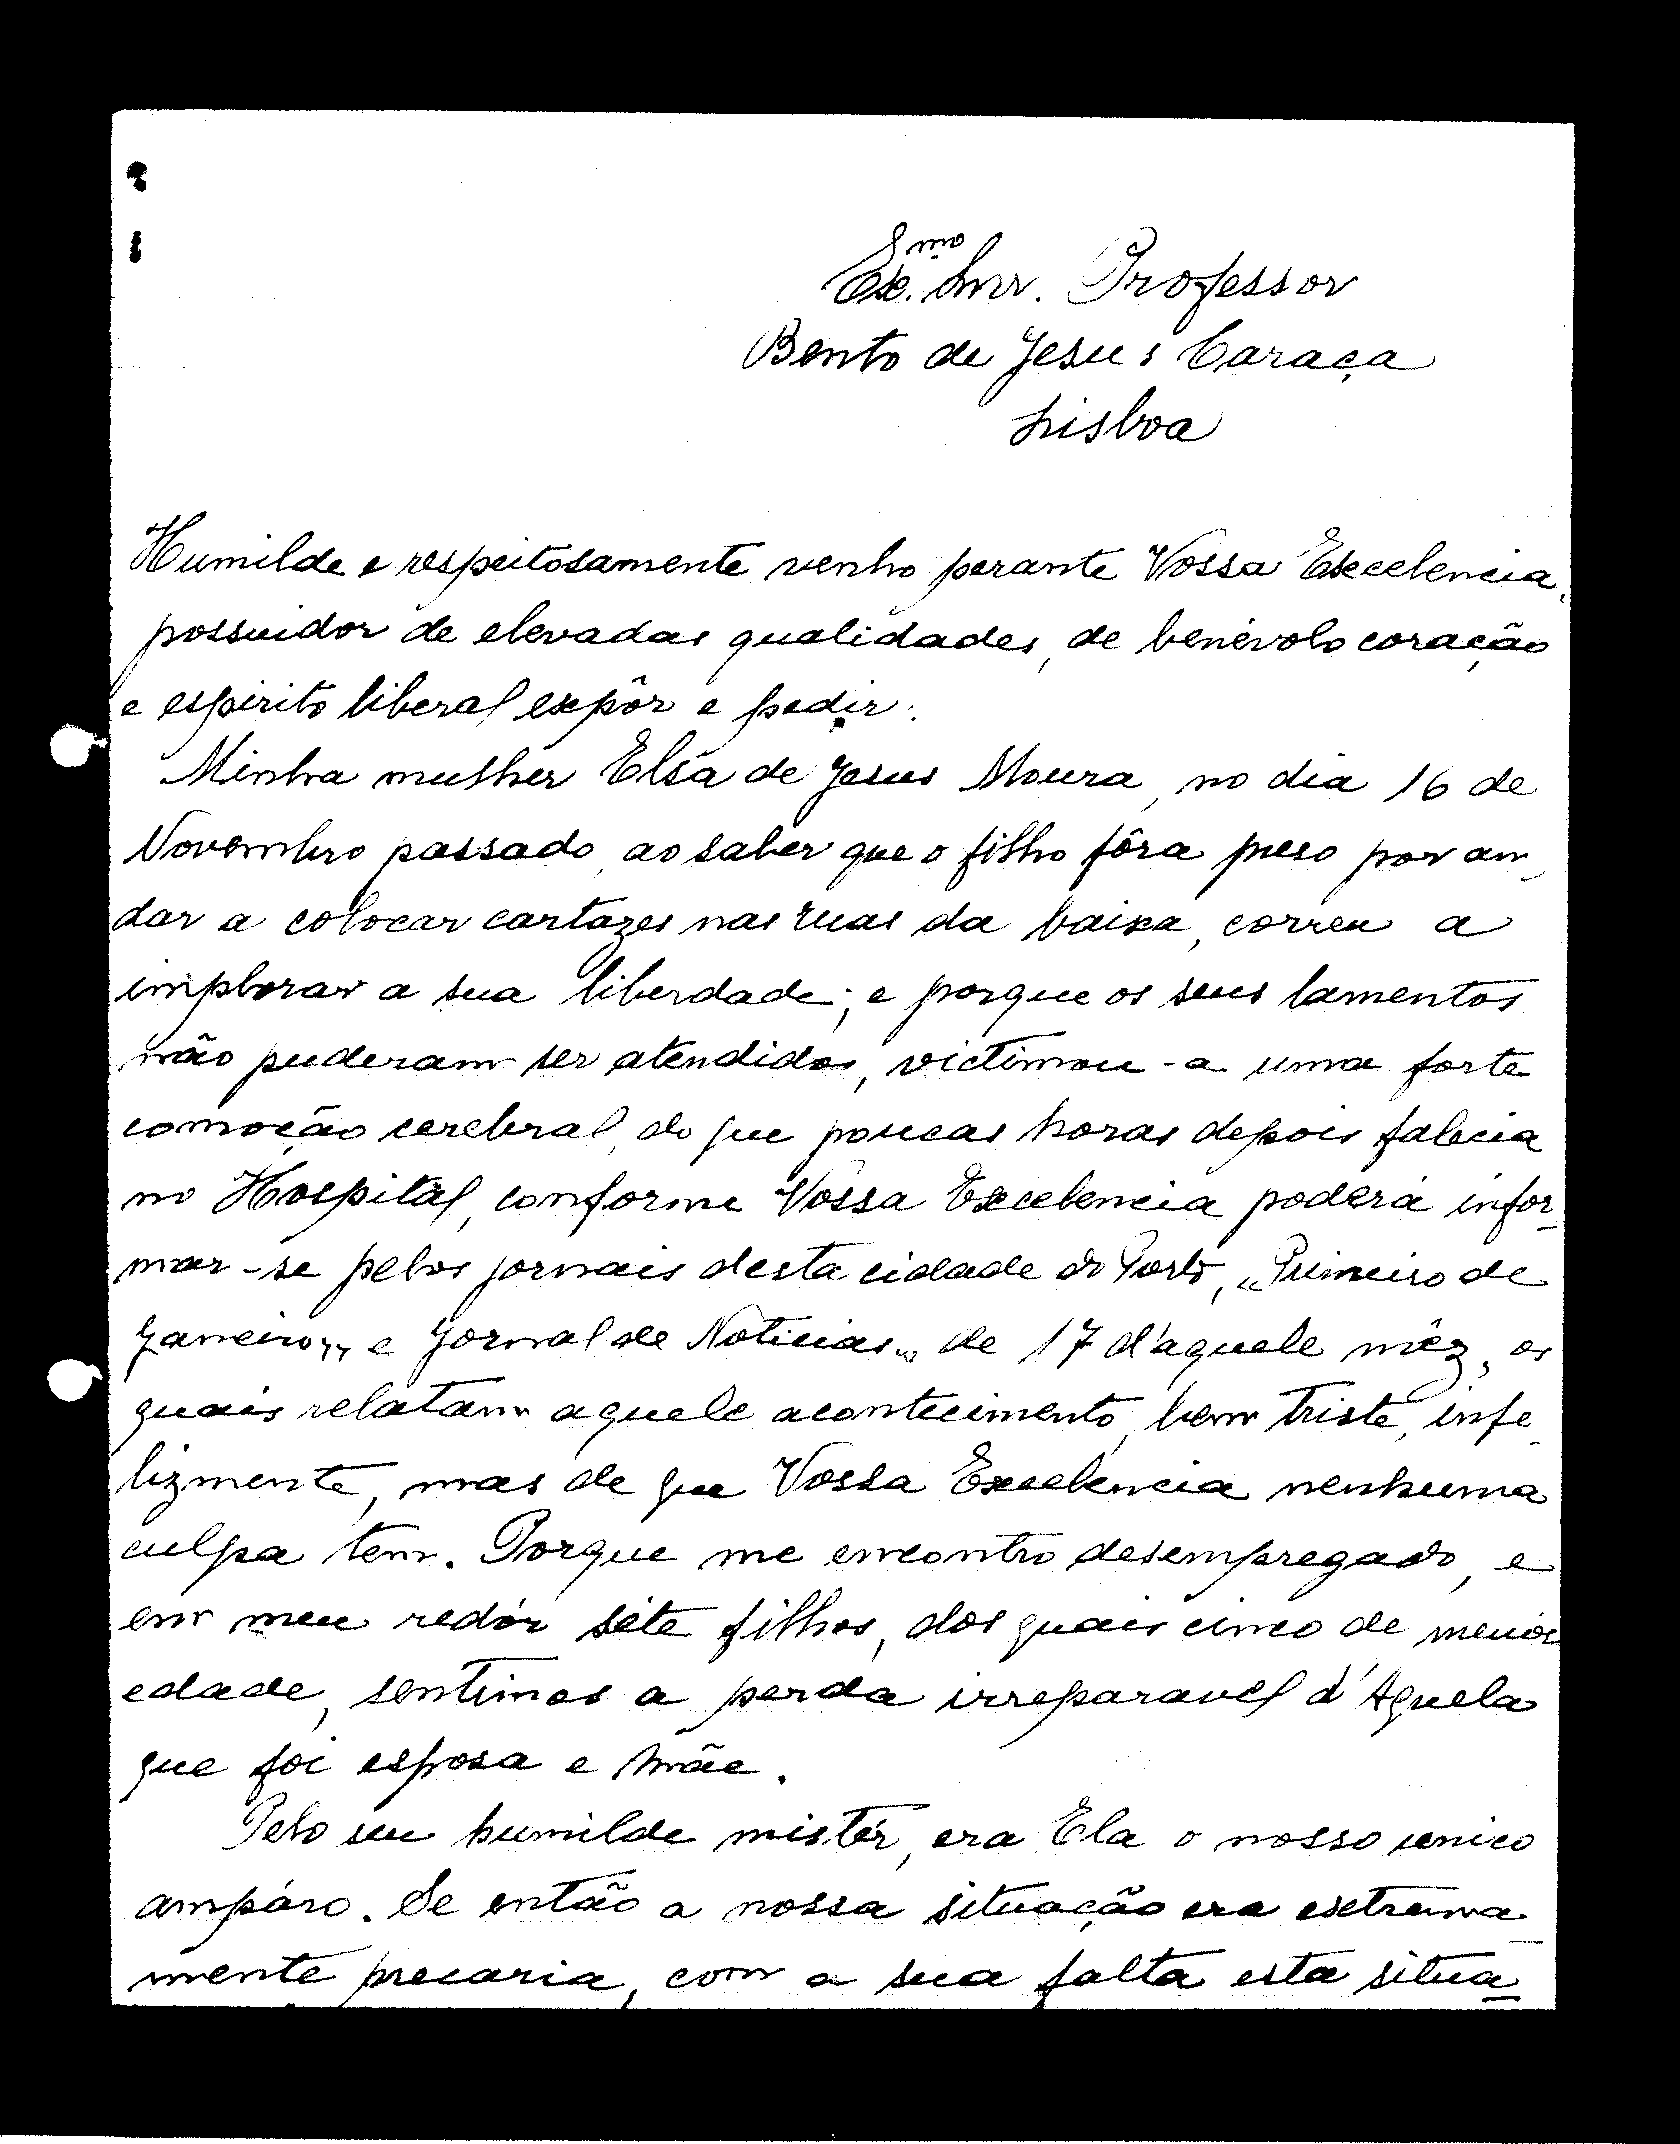 Ex.mo Snr. Professor
Bento de Jesus Caraça
Lisboa
Humilde e respeitosamente venho perante Vossa Excelencia,
possuidor de elevadas qualidades, de benévolo coração
e espirito liberal expôr e pedir:
Minha mulher Elsa de Jesus Moura, no dia 16 de
Novembro passado, ao saber que o filho fôra preso por an-
dar a colocar cartazes nas ruas da baixa, correu a
implorar a sua liberdade; e porque os seus lamentos
não puderam ser atendidos, victimou-a uma forte
comoção cerebral, do que poucas horas depois falecia
no Hospital, conforme Vossa Excelencia poderá infor-
mar-se pelos jornais desta cidade do Porto, "Primeiro de
Janeiro", e Jornal de Noticias" de 17 d'aquele mêz, os
quais relatam aquele acontecimento, bem triste, infe-
lizmente, mas de que Vossa Excelencia nenhuma
culpa tem. Porque me encontro desempregado, e
em meu redór séte filhos, dos quais cinco de menór
edade, sentimos a perda irreparavel d'Aquela
que foi esposa e Mãe.
Pelo seu humilde mistér, era Ela o nosso unico
ampáro. Se então a nossa situação era extrema-
mente precaria, com a sua falta esta situa-